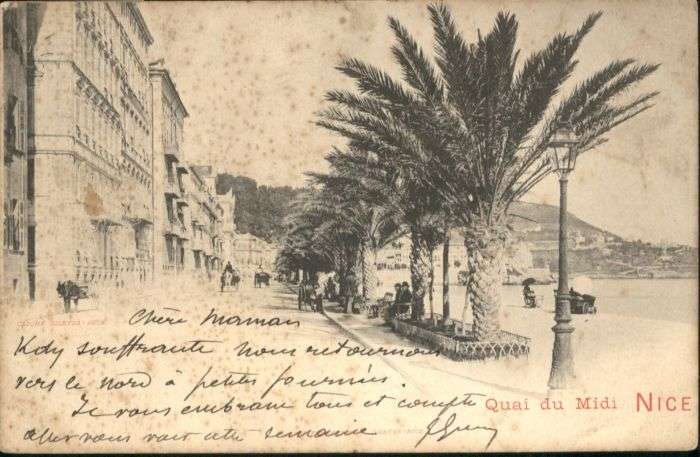 Chère Maman
Kdy souffrante nous retournons
vers le nord à petites fournées.
Je vous embrasse tous et compte
aller vous voir cette semaine
Quai du Midi NICE